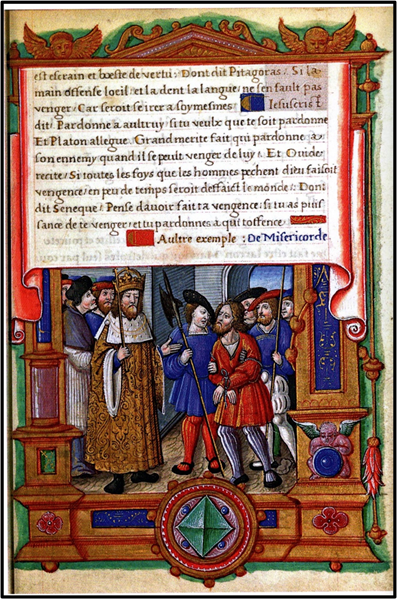 est escrain et boeste de vertu: Dont dit Pitagoras/ Si la
main offense loeil/ et la dent la langue/ ne sen fault pas
venger/ Car seroit se irer a soymesmes: Iesuscrist
dit/ Pardonne a aultruy/ si tu veulx que te soit pardonne
Et Platon allegue/ Grand merite fait qui pardonne a
son ennemy quand il se peult venger de luy/ Et Ouide
recite/ Si toutes les foys que les hommes pechent dieu faisoit
vengence/ en peu de temps seroit deffaict le monde: Dont
dit Seneque/ Pense dauoir fait ta vengence: si tu as puis
sance de te venger/ et tu pardonnes a qui toffence
Aultre exemple: De Misericorde